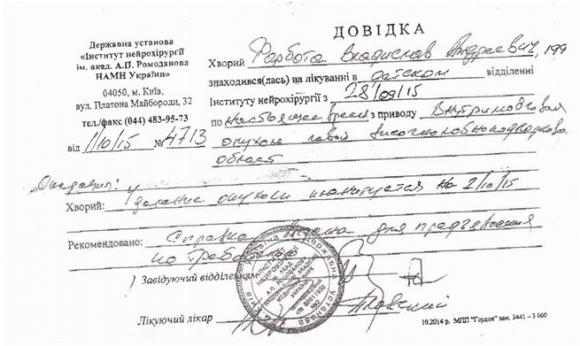 ДОВІДКА
Державна установа
«Інститут нейрохірургії
ім. акад. А.П. Ромоданова
НАМН України»
04050, м. Київ,
вул. Платона Майбороди, 32
тел./факс (044) 483-95-73
від 1/10/15 № 4713
Хворий Фарбота Владислав Андреевич, 199
знаходився(лась) на лікуванні в детском відділенні
Інституту нейрохірургії з 28/09/15
по настоящее время з приводу Внутримозговая
опухоль левой
област
Хворий: удаление опухоли планируется на 2/10/15
Рекомендовано: Справка дана для предъявления
по требованию
Завідуючий відділенням
Лікуючий лікар
10.2014 р. МПП "Гордон" зам. 3441 – 3 000